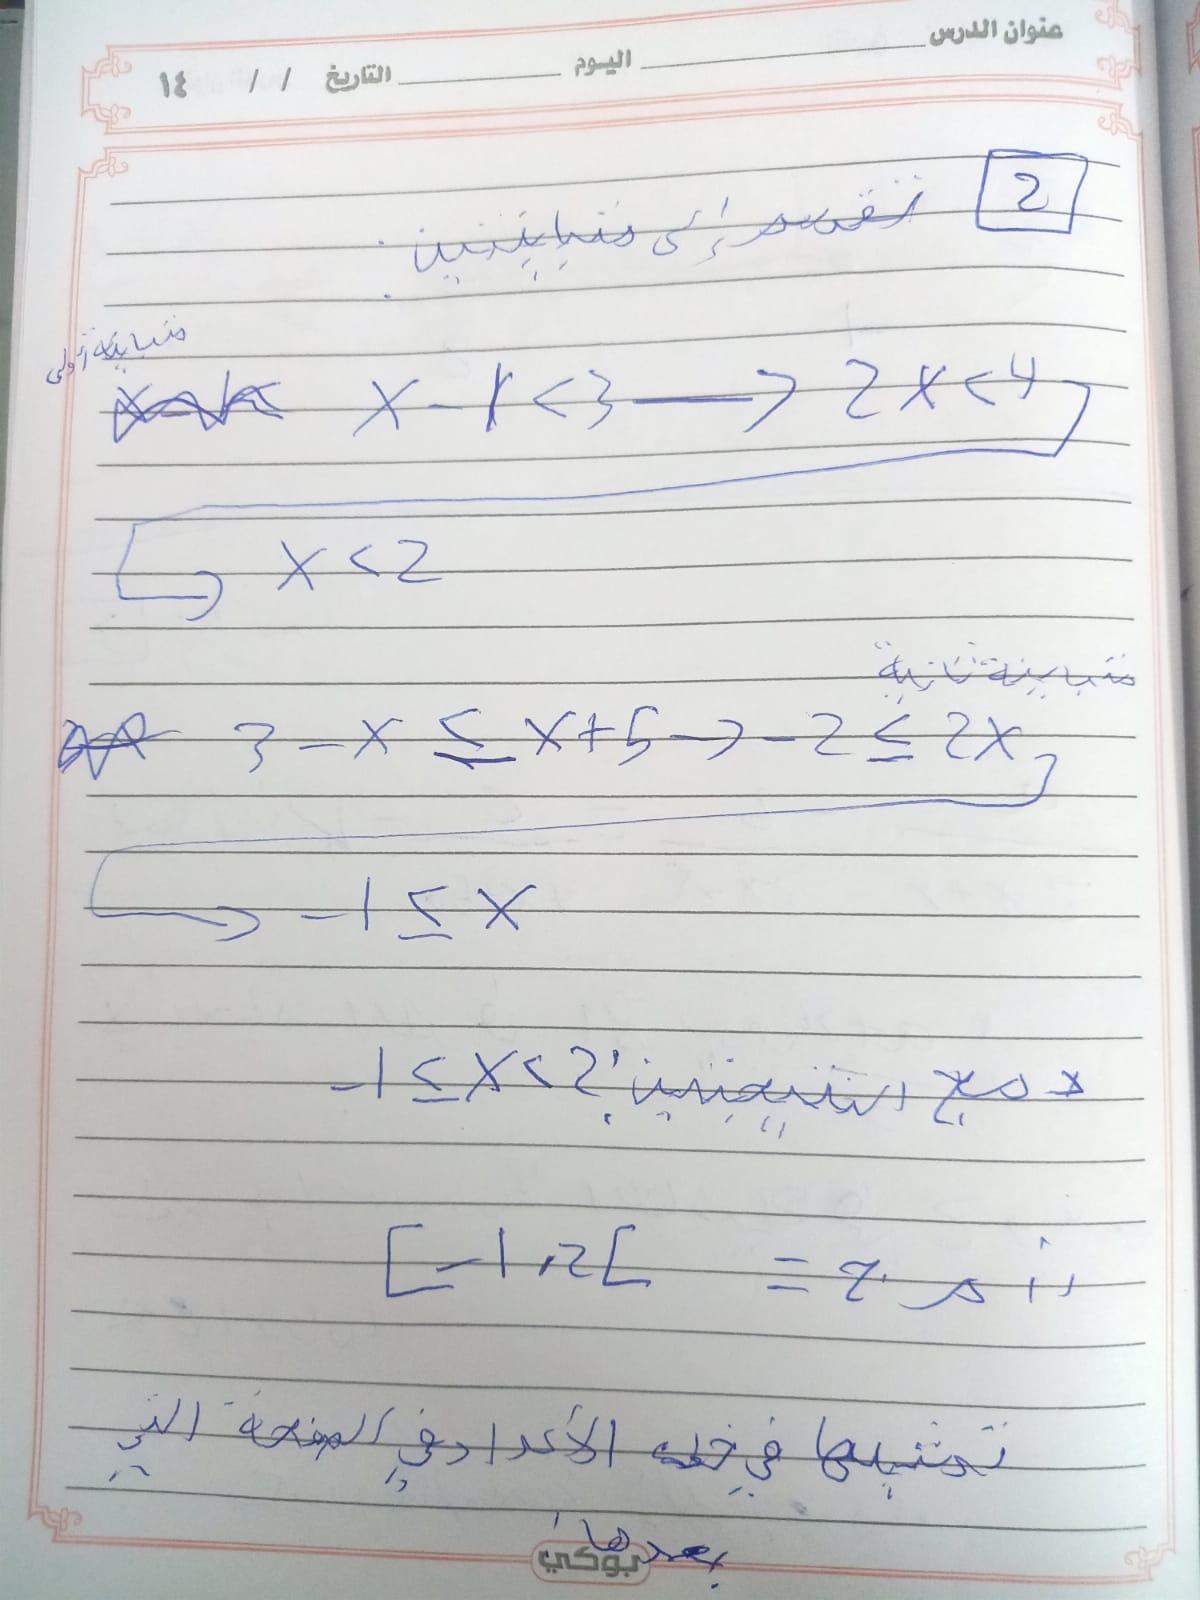 عنوان الدرس
اليوم
التاريخ / / ١٤
2 تقسم إلى متباينتين:
متباينة أولى
x - 1 < 3 → 2x < 4
→ x < 2
متباينة ثانية
3 - x ≤ x + 5 → -2 ≤ 2x
→ -1 ≤ x
دمج النتيجتين: -1 ≤ x < 2
= [-1, 2[
تمثيلها في خط الأعداد في الصفحة التي
بعدها
بوكي